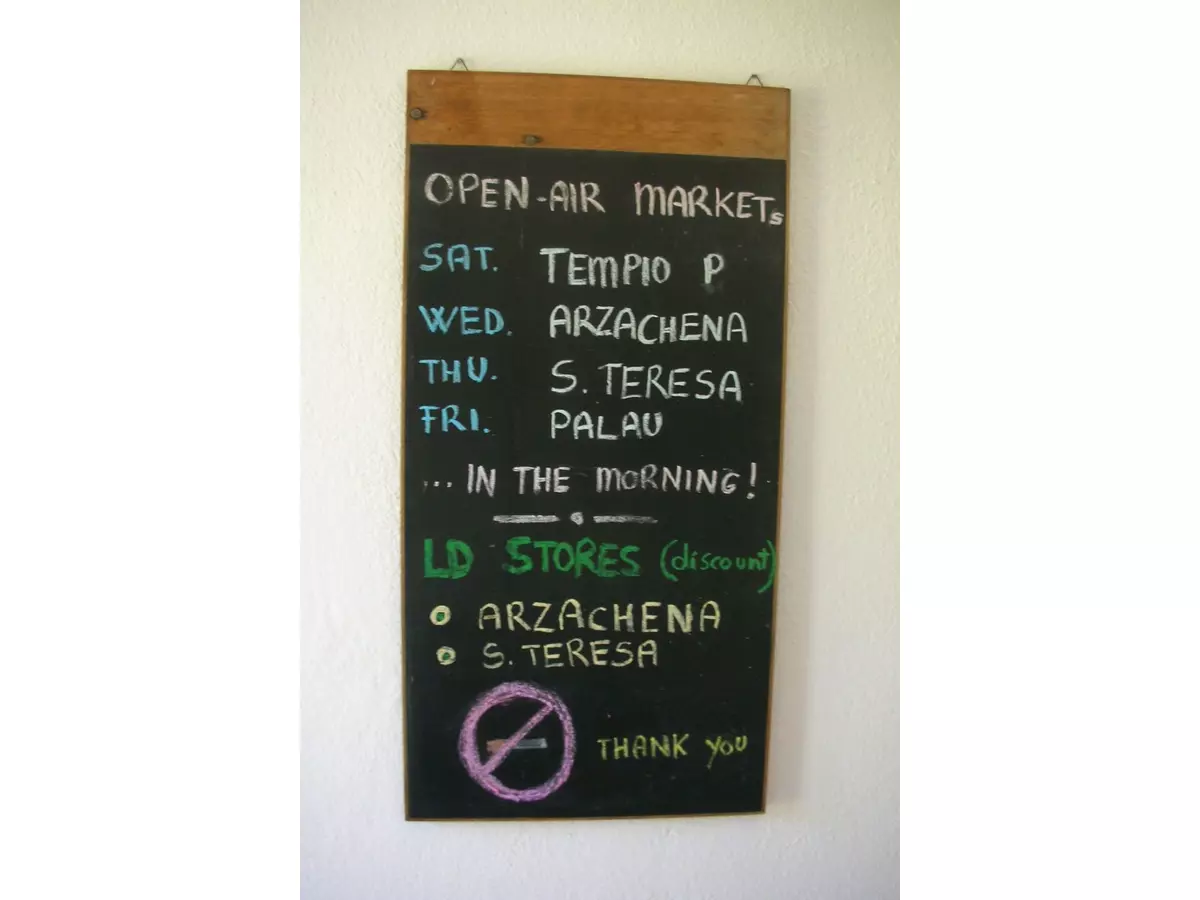 OPEN-AIR MARKETS
SAT. TEMPIO P
WED. ARZACHENA
THU. S. TERESA
FRI. PALAU
... IN THE MORNING!
LD STORES (discount)
ARZACHENA
S. TERESA
THANK YOU